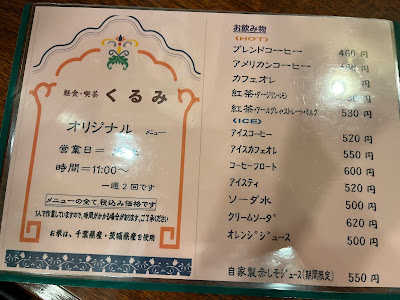 軽食・喫茶 くるみ
オリジナル メニュー
営業日=
時間=11:00~
一週2回です
メニューの全て税込み価格です
1人で作業していますので、時間がかかる場合があります、ご了承ください
お米は、千葉県産・茨城県産を使用
お飲み物
(HOT)
ブレンドコーヒー 460円
アメリカンコーヒー 円
カフェオレ 円
紅茶・ダージリン・ 円
紅茶・アールグレイ・ストレート・ミルク 530円
(ICE)
アイスコーヒー 520円
アイスカフェオレ 550円
コーヒーフロート 600円
アイスティ 520円
ソーダ水 500円
クリームソーダ 620円
オレンジジュース 500円
自家製赤しそジュース(期間限定) 550円